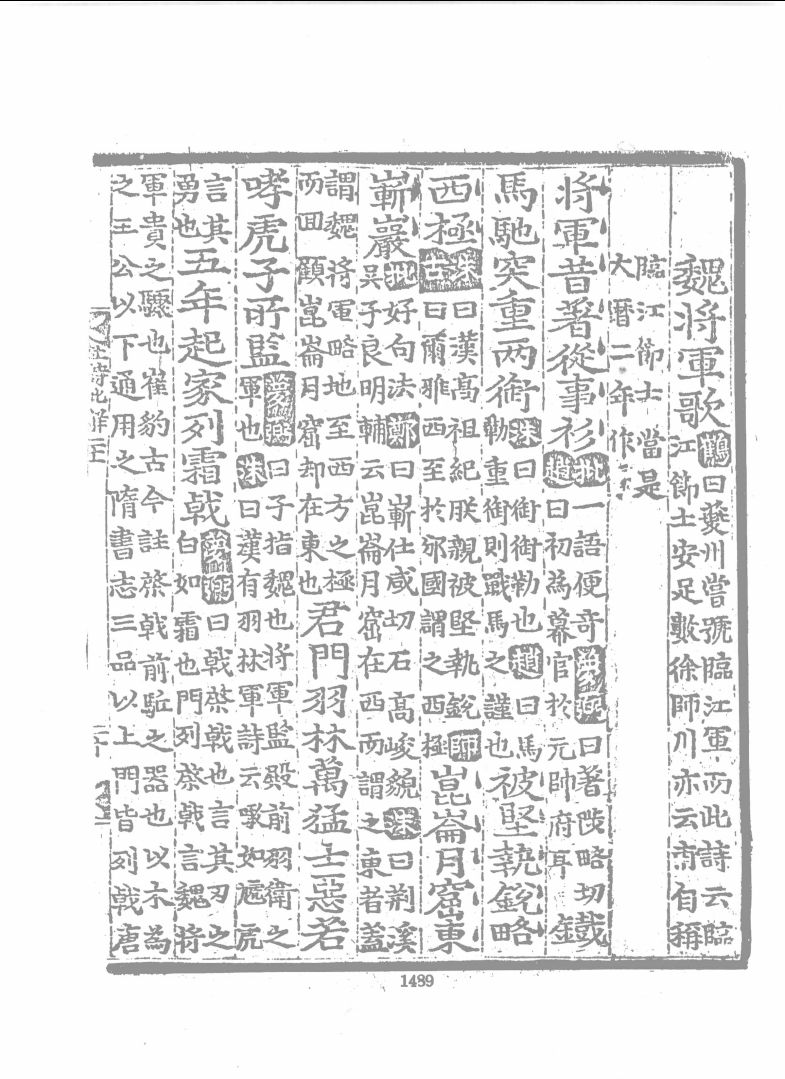 魏將軍歌
鶴曰夔州嘗號臨江軍而此詩云臨
江節士安足數徐師川亦云甫自稱
臨江節士當是
大曆二年作
將軍昔著從事衫
批一語便奇夢弼曰著陟略切
趙曰初為幕官於元帥府耳
鐵
馬馳突重兩銜
洙曰銜銜勒也趙曰馬
勒重銜則戰馬之謹也
被堅執銳略
西極
洙曰漢高祖紀朕親被堅執銳師
古曰爾雅西至於邠國謂之西極
崑崙月窟東
嶄巖
批好句法鄭曰嶄仕咸切石高峻貌洙曰荆溪
吴子良明輔云崑崙月窟在西而謂之東者蓋
謂魏將軍略地至西方之極
而回顧崑崙月窟却在東也
君門羽林萬猛士惡若
哮虎子所監
夢弼曰子指魏也將軍監殿前羽衛之
軍也洙曰漢有羽林軍詩云噉如虓虎
言其
勇也
五年起家列霜戟
夢弼曰戟棨戟也言其刃之
白如霜也門列棨戟言魏將
軍貴之驟也崔豹古今註棨戟前駈之器也以木為
之王公以下通用之隋書志三品以上門皆列戟唐
1489